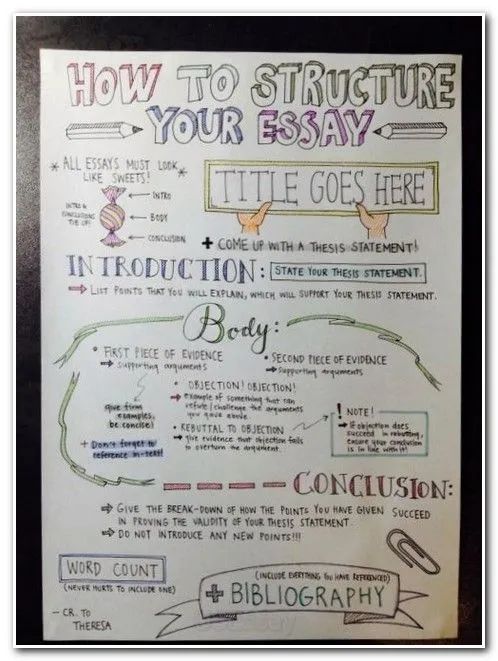 HOW TO STRUCTURE
YOUR ESSAY
* ALL ESSAYS MUST LOOK *
LIKE SWEETS!
INTRO
INTRO &
CONCLUSIONS
TIE UP!
BODY
CONCLUSION
TITLE GOES HERE
+ COME UP WITH A THESIS STATEMENT!
INTRODUCTION: STATE YOUR THESIS STATEMENT.
⇒ LIST POINTS THAT YOU WILL EXPLAIN, WHICH WILL SUPPORT YOUR THESIS STATEMENT.
Body:
• FIRST PIECE OF EVIDENCE
⇒ supporting arguments
• SECOND PIECE OF EVIDENCE
→ supporting arguments
give firm
examples,
be concise!
+ Don't forget to
reference in-text!
• OBJECTION! OBJECTION!
⇒ example of something that can
refute/challenge the arguments
you gave above.
• REBUTTAL TO OBJECTION
↪ give evidence that objection fails
to overturn the argument.
! NOTE!
⇒ IF objection does
succeed in rebutting,
ensure your conclusion
is in line with it!
CONCLUSION:
⇒ GIVE THE BREAK-DOWN OF HOW THE POINTS YOU HAVE GIVEN SUCCEED
IN PROVING THE VALIDITY OF YOUR THESIS STATEMENT.
⇒ DO NOT INTRODUCE ANY NEW POINTS!!!
WORD COUNT
(NEVER HURTS TO INCLUDE ONE)
(INCLUDE EVERYTHING YOU HAVE REFERENCED)
+ BIBLIOGRAPHY
— CR. TO
THERESA